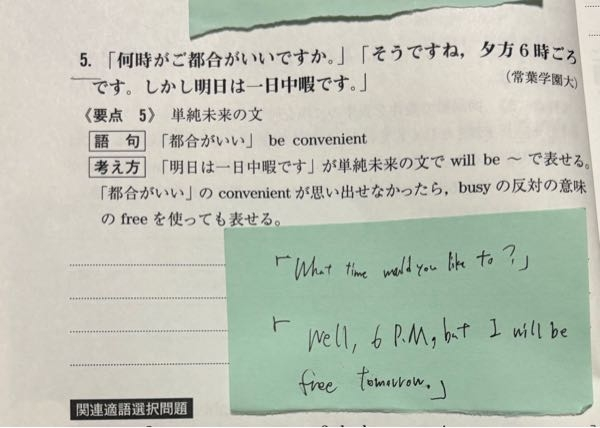 5. 「何時がご都合がいいですか。」「そうですね，夕方6時ごろ
です。しかし明日は一日中暇です。」 (常葉学園大)
《要点 5》 単純未来の文
語句 「都合がいい」 be convenient
考え方 「明日は一日中暇です」が単純未来の文で will be ～ で表せる。
「都合がいい」の convenient が思い出せなかったら，busy の反対の意味
の free を使っても表せる。
「What time would you like to?」
「Well, 6 P.M, but I will be
free tomorrow.」
関連適語選択問題